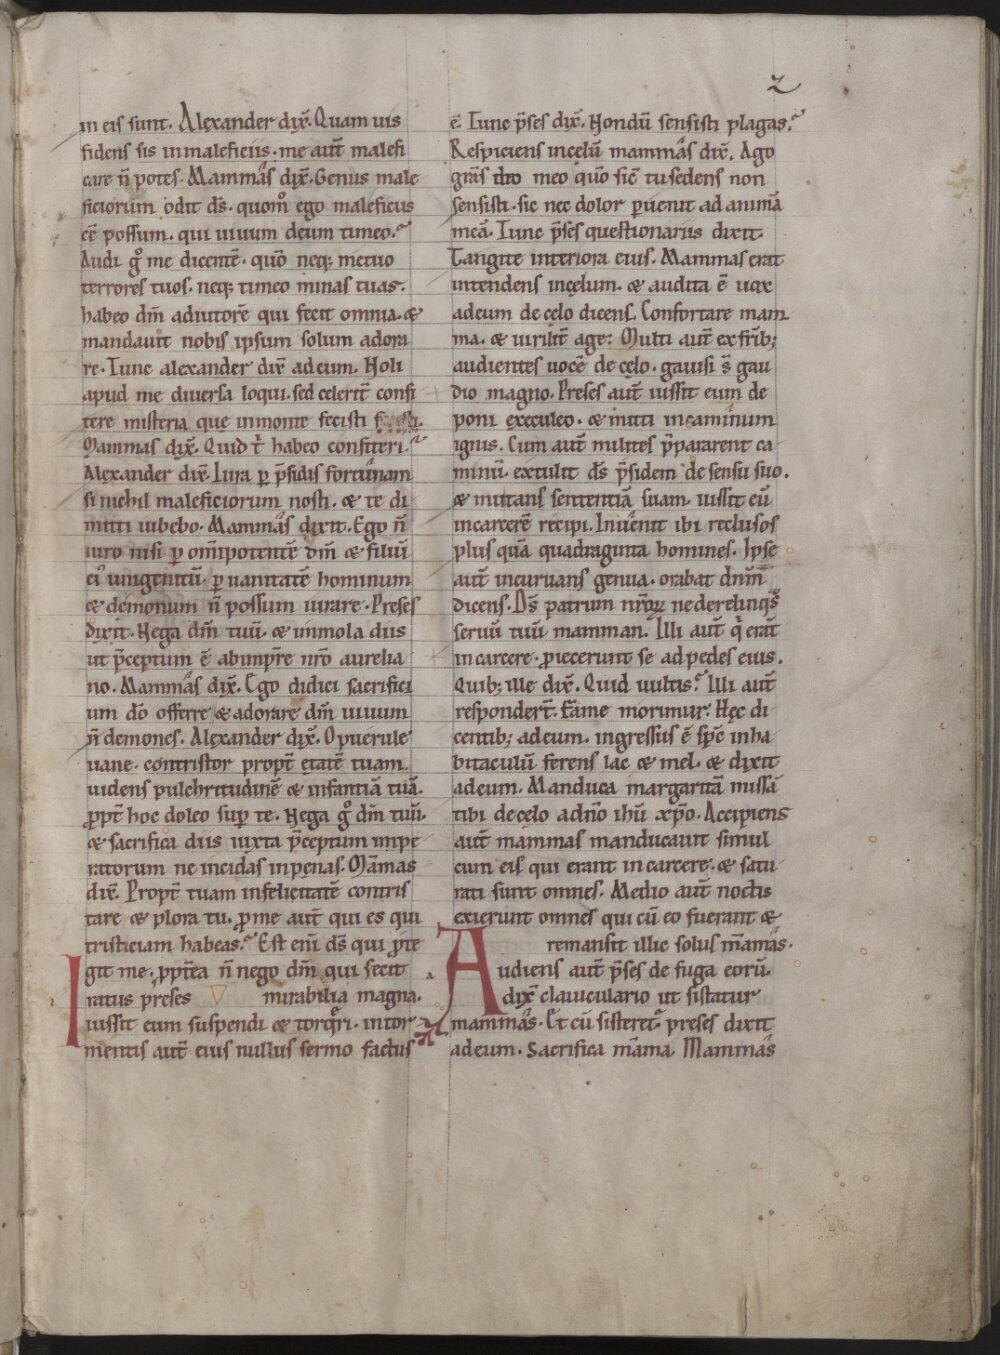 2
in eis sunt. Alexander dix̄. Quam uis
fidens sis in maleficiis. me aut̄ malefi
care n̄ potes. Mammas dix̄. Genus male
ficiorum odit ds̄. quom̊ ego maleficus
eē possum. qui uiuum deum timeo.
Audi gͦ me dicentē. quō neq; metuo
terrores tuos. neq; timeo minas tuas.
habeo dm̄ adiutorē qui fecit omnia. &
mandauit nobis ipsum solum adora
re. Tunc alexander dix̄ ad eum. Noli
apud me diuersa loqui. sed celerit̄ confi
tere misteria que in monte fecisti
Mammas dix̄. Quid t̄ habeo confiteri.
Alexander dix̄. Iura ꝑ p̄sidis fortunam
si nichil maleficiorum nosti. & te di
mitti iubebo. Mammas dixit. Ego n̄
iuro nisi ꝑ om̄ipotentē dm̄ & filiū
eiꝰ unigenitū. ꝑ uanitatē hominum
& demonum n̄ possum iurare. Preses
dixit. Nega dm̄ tuū. & immola diis
ut p̄ceptum ē ab imp̄re nr̄o aurelia
no. Mammas dix̄. Ego didici sacrifici
um dō offerre & adorare dm̄ uiuum
n̄ demones. Alexander dix̄. O puerule
uane. contristor propt̄ ętatē tuam.
uidens pulchritudinē & infantiā tuā.
ꝓpt̄ hoc doleo suꝑ te. Nega gͦ dm̄ tuū.
& sacrifica diis iuxta p̄ceptum impe
ratorum ne incidas in penas. Mām̄as
dix̄. Propt̄ tuam infelicitatē contris
tare & plora tu. ꝓ me aut̄ qui es qui
tristiciam habeas. Est eni ds̄ qui ꝓte
git me. ꝓpt̄ea n̄ nego dm̄ qui fecit
Iratus preses mirabilia magna.
iussit eum suspendi & torqr̄i. in tor
mentis aut̄ eius nullus sermo factus
ē. Tunc p̄ses dix̄. Nondū sensisti plagas.
Respiciens in celū mammas dix̄. Ago
gr̄as dō meo quō sic̄ tu sedens non
sensisti. sic nec dolor ꝑuenit ad animā
meā. Tunc p̄ses questionariis dixit.
Tangite interiora eius. Mammas erat
intendens in cęlum. & audita ē uox
ad eum de cęlo dicens. Confortare mam
ma. & uirilit̄ age: Multi aut̄ ex fr̄ib;
audientes uocē de celo. gauisi s̄ gau
dio magno. Preses aut̄ iussit eum de
poni execuleo. & mitti in caminum
ignis. Cum aut̄ milites p̄pararent ca
minū. extulit ds̄ p̄sidem de sensu suo.
& mutans sententiā suam. iussit eū
in carcerē recipi. Inuenit ibi reclusos
plus quā quadraginta homines. Ipse
aut̄ incuruans genua. orabat dnm̄
dicens. Ds̄ patrum nr̄oꝝ ne derelinqͣs
seruū tuū mamman. Illi aut̄ q̄ erāt
in carcere. ꝓiecerunt se ad pedes eius.
Quib; ille dix̄. Quid uultis. Illi aut̄
respondert̄. Fame morimur. Hęc di
centib; ad eum. ingressus ē spc̄ie in ha
bitaculū ferens lac & mel. & dixit
ad eum. Manduca margaritā missā
tibi de celo a dn̄o ihū xp̄o. Accipiens
aut̄ mammas manducauit simul
cum eis qui erant in carcere. & satu
rati sunt omnes. Medio aut̄ noctis
exierunt omnes qui cū eo fuerant &
remansit illic solus mām̄as.
Audiens aut̄ p̄ses de fuga eorū.
dix̄ clauiculario ut sistatur
mammas. Et cū sisteret̄. preses dixit
ad eum. Sacrifica mām̄a. Mammas